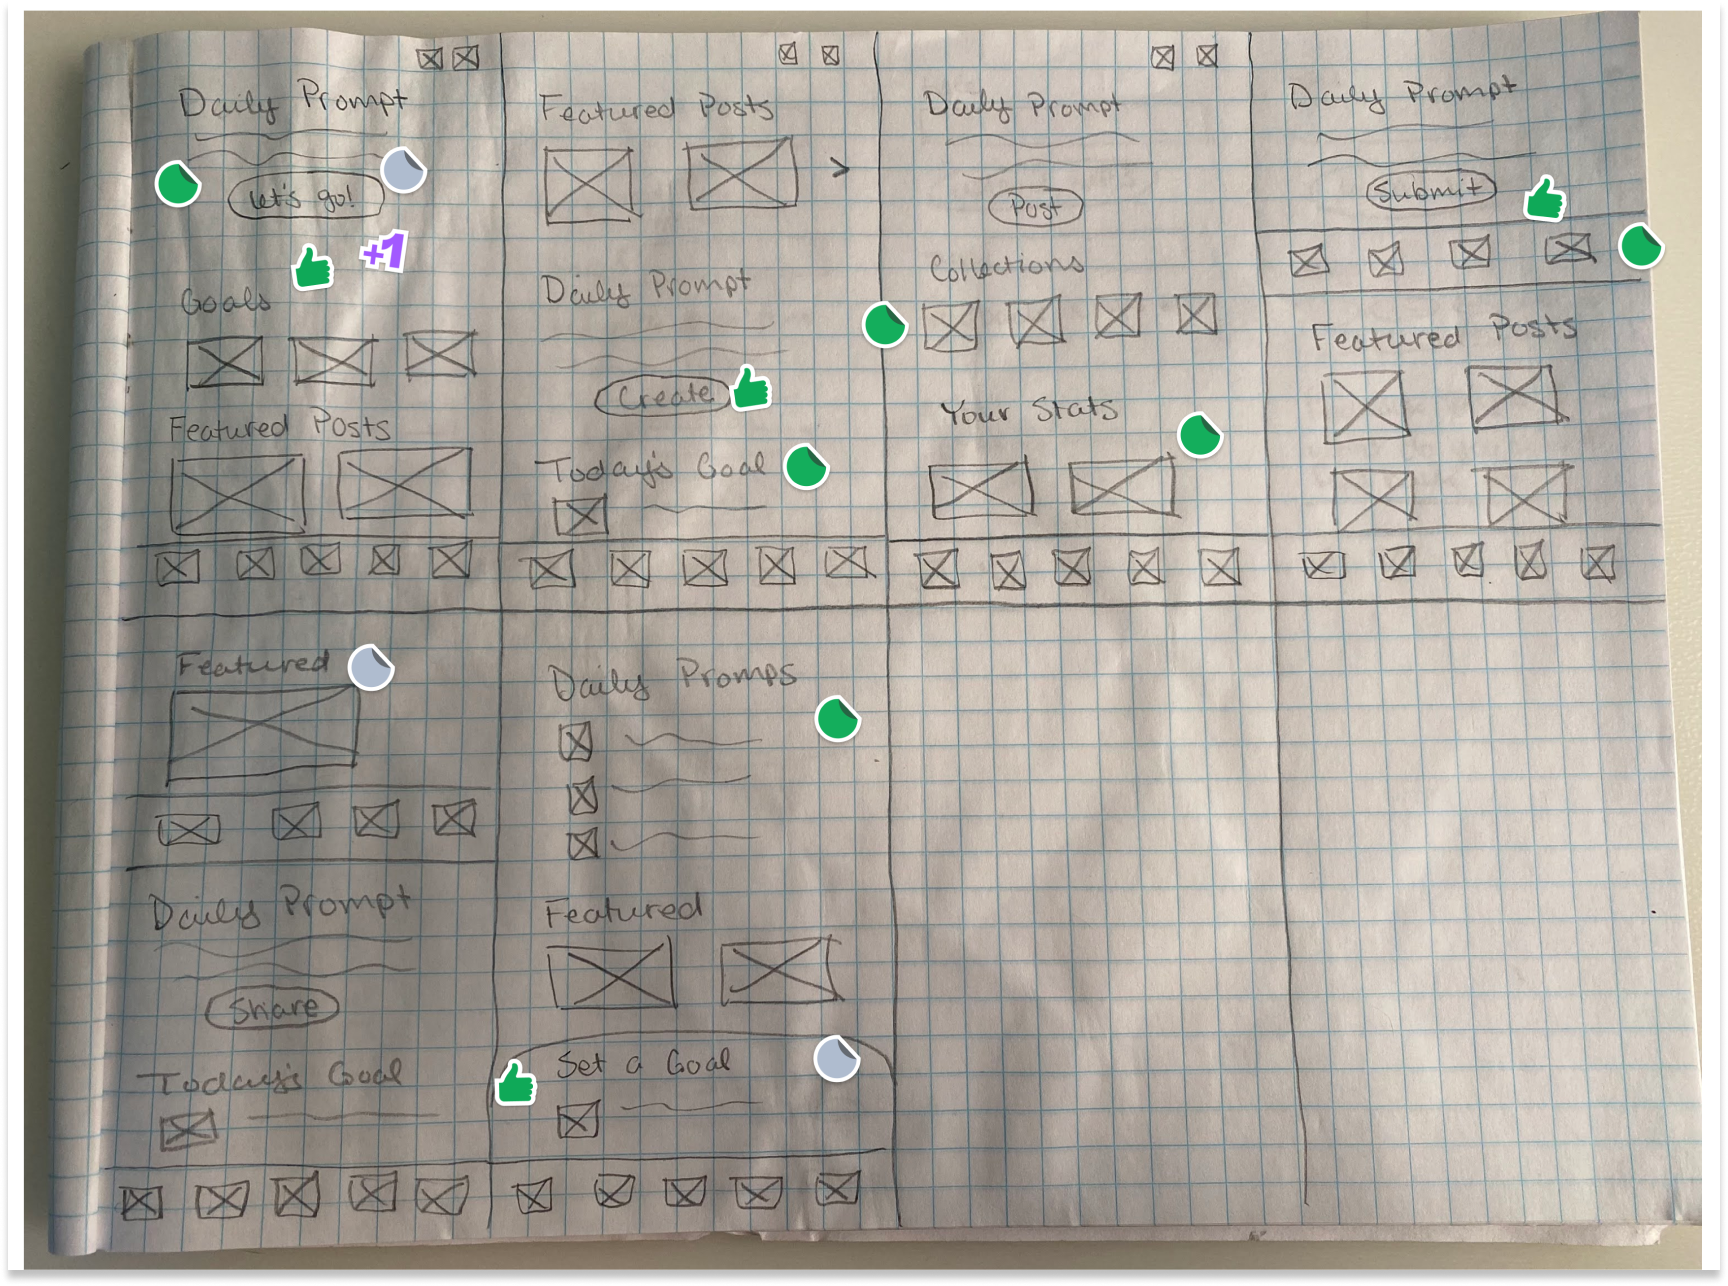 Daily Prompt
Let's go!
+1
Goals
Featured Posts
Featured Posts
>
Daily Prompt
Create
Today's Goal
Daily Prompt
Post
Collections
Your Stats
Daily Prompt
Submit
Featured Posts
Featured
Daily Prompt
Share
Today's Goal
Daily Promps
Featured
Set a Goal